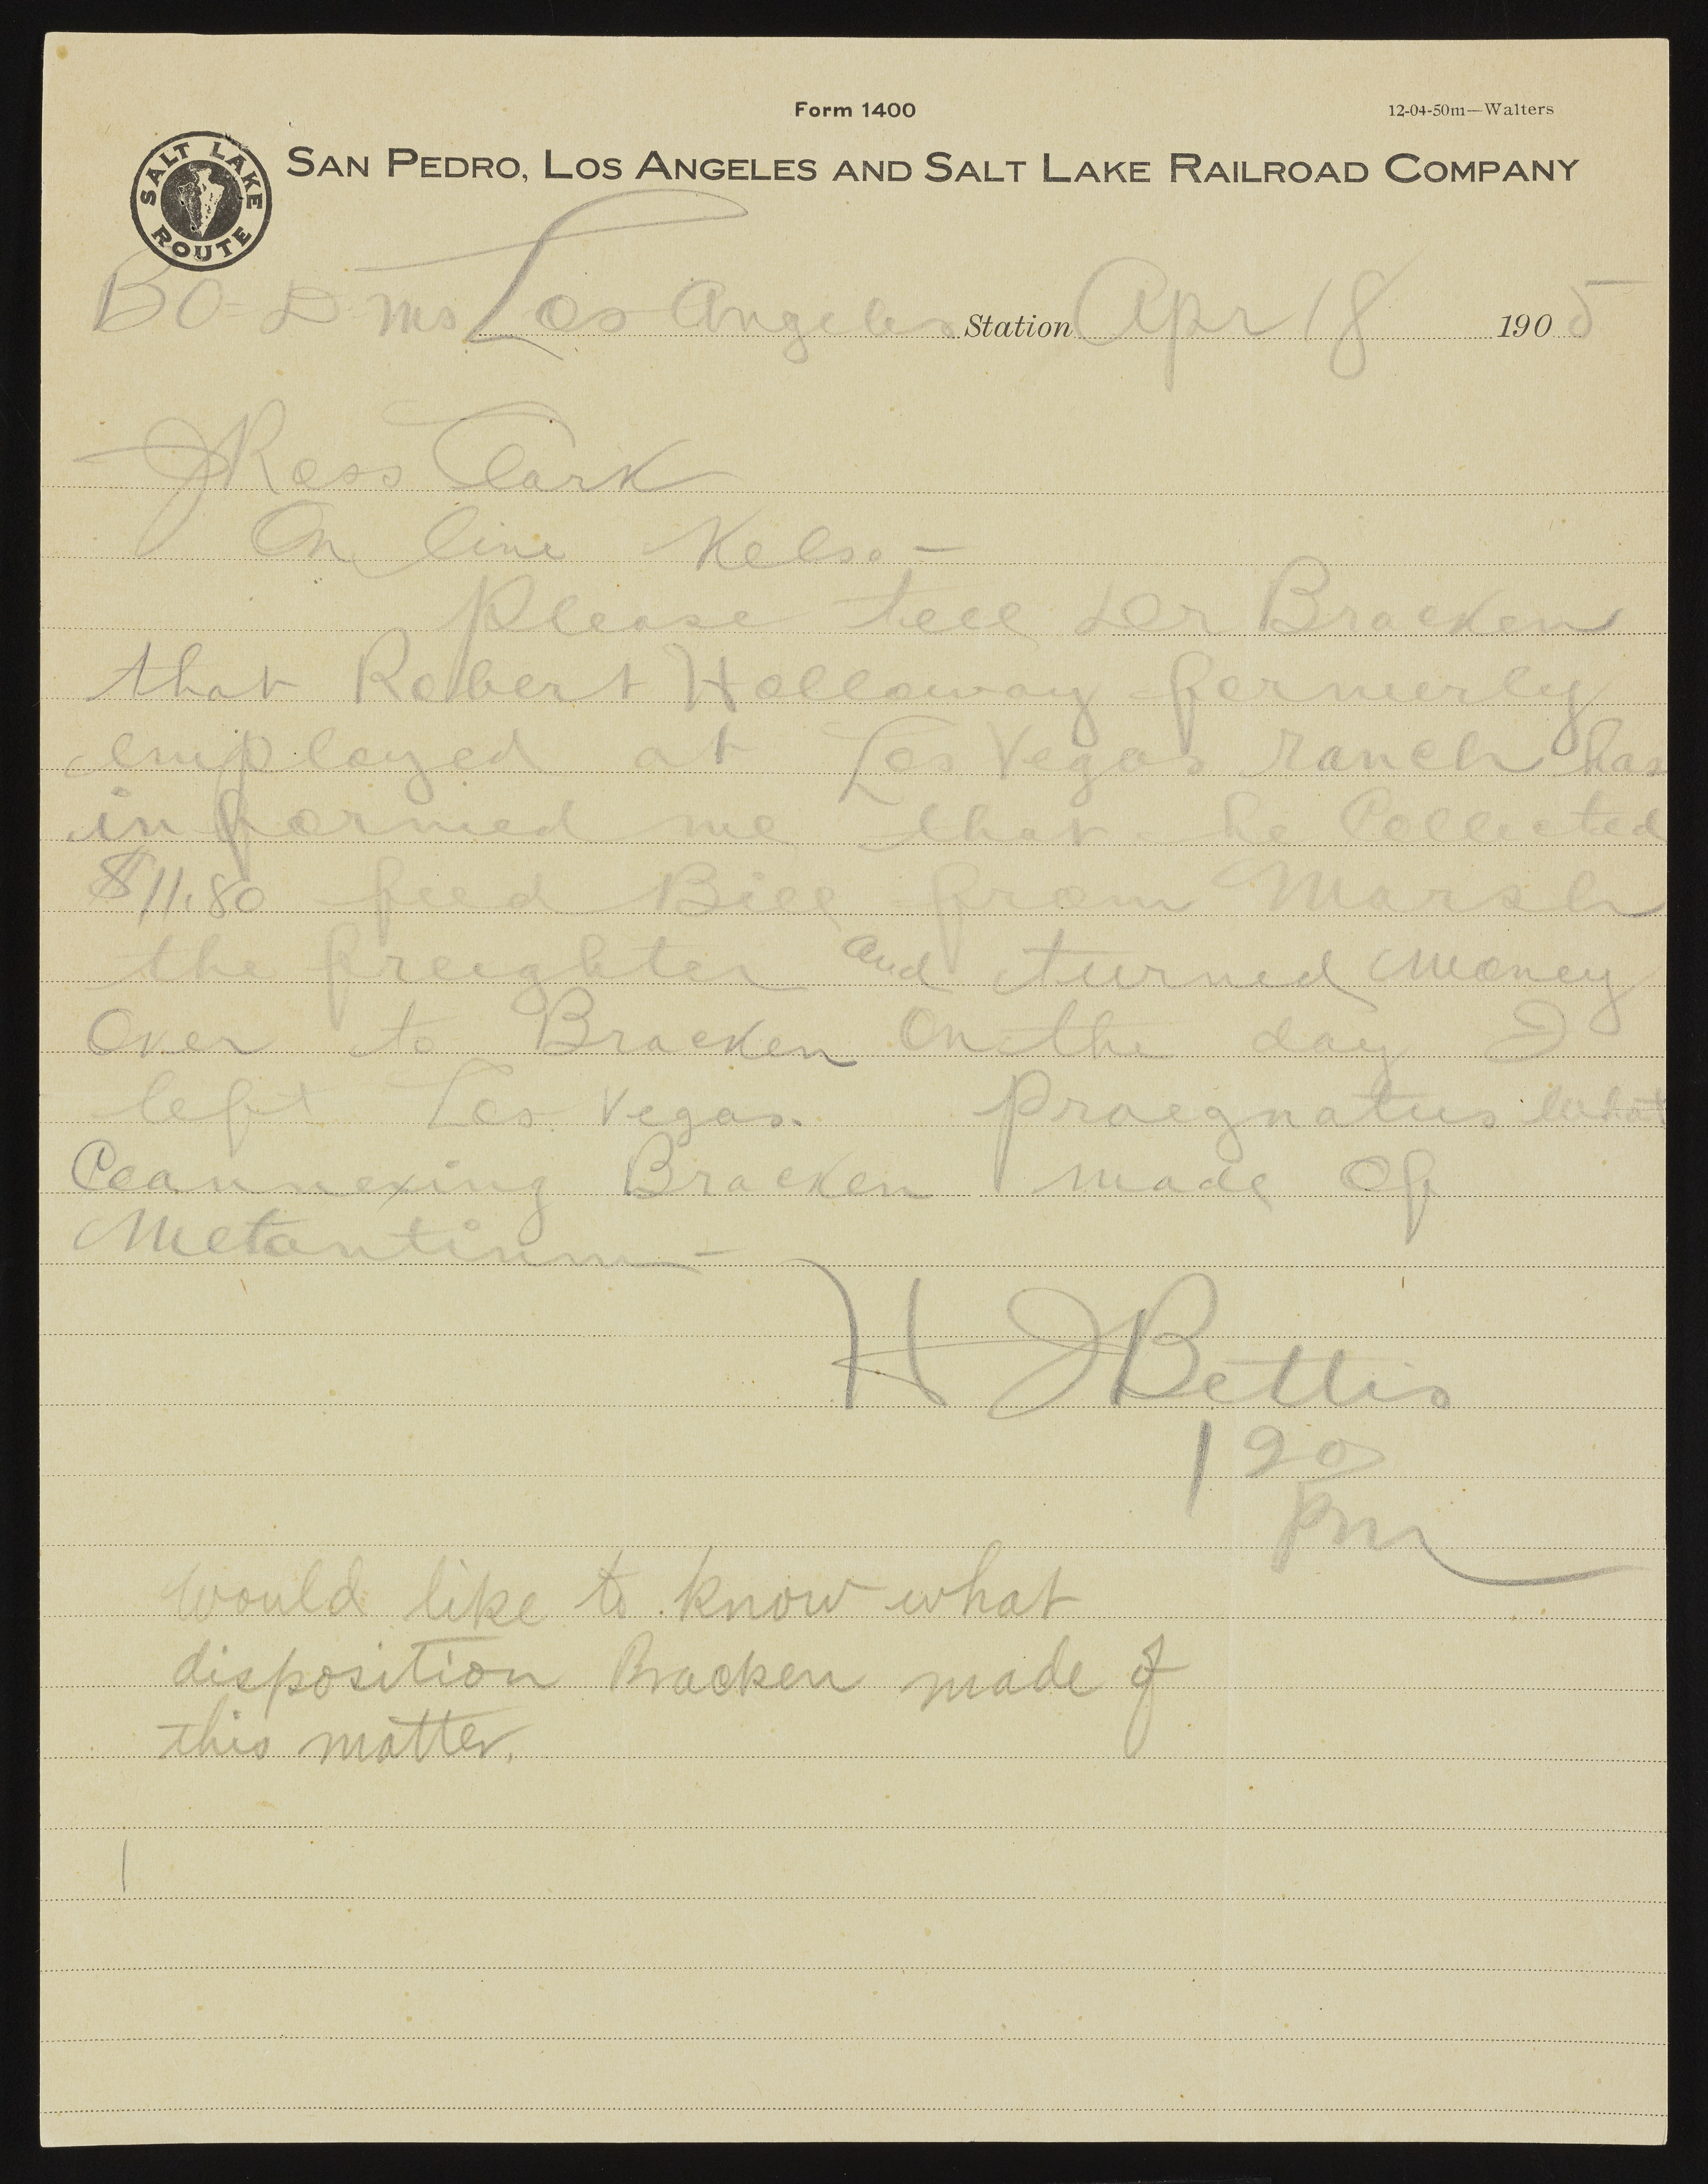 Form 1400
12-04-50m—Walters
SALT LAKE ROUTE
SAN PEDRO, LOS ANGELES AND SALT LAKE RAILROAD COMPANY
BO- D Ms Los Angeles Station Apr 18 1905
J Ross Clark
On line Kelso-
Please tell Bracken
that Robert Holloway formerly
employed at Las Vegas ranch has
informed me that he Collected
$11.80 feed Bill from Marsh
the freighter and turned money
Over to Bracken On the day I
left Las Vegas. Praegnatus what
Ceannexing Bracken made Of
Metantinum-
H J Bettis
120
Pm
would like to know what
disposition Bracken made of
this matter.